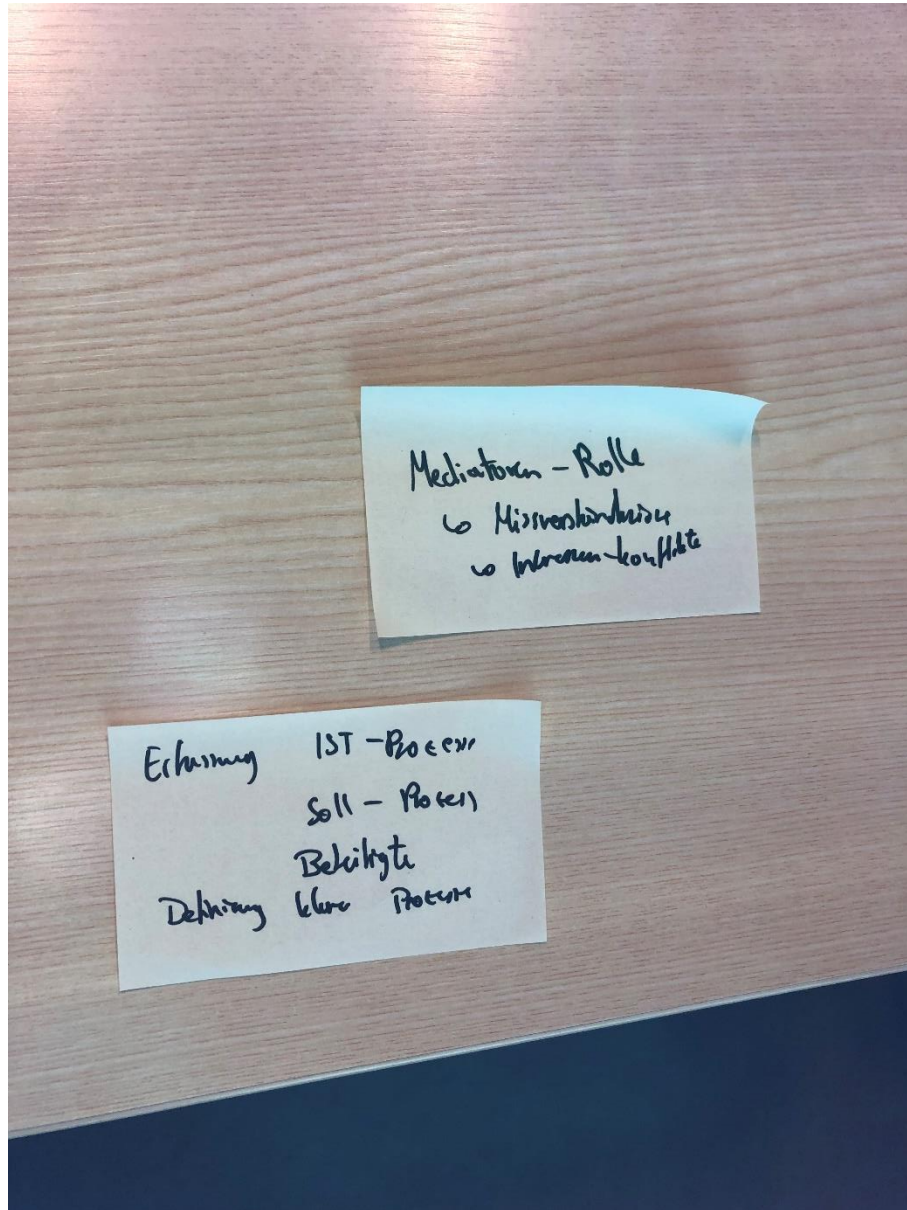 Mediatoren - Rolle
↳ Missverständnisse
↳ Interessen-konflikte
Erfassung IST - Prozess
Soll - Prozess
Beteiligte
Definierung klarer Prozesse